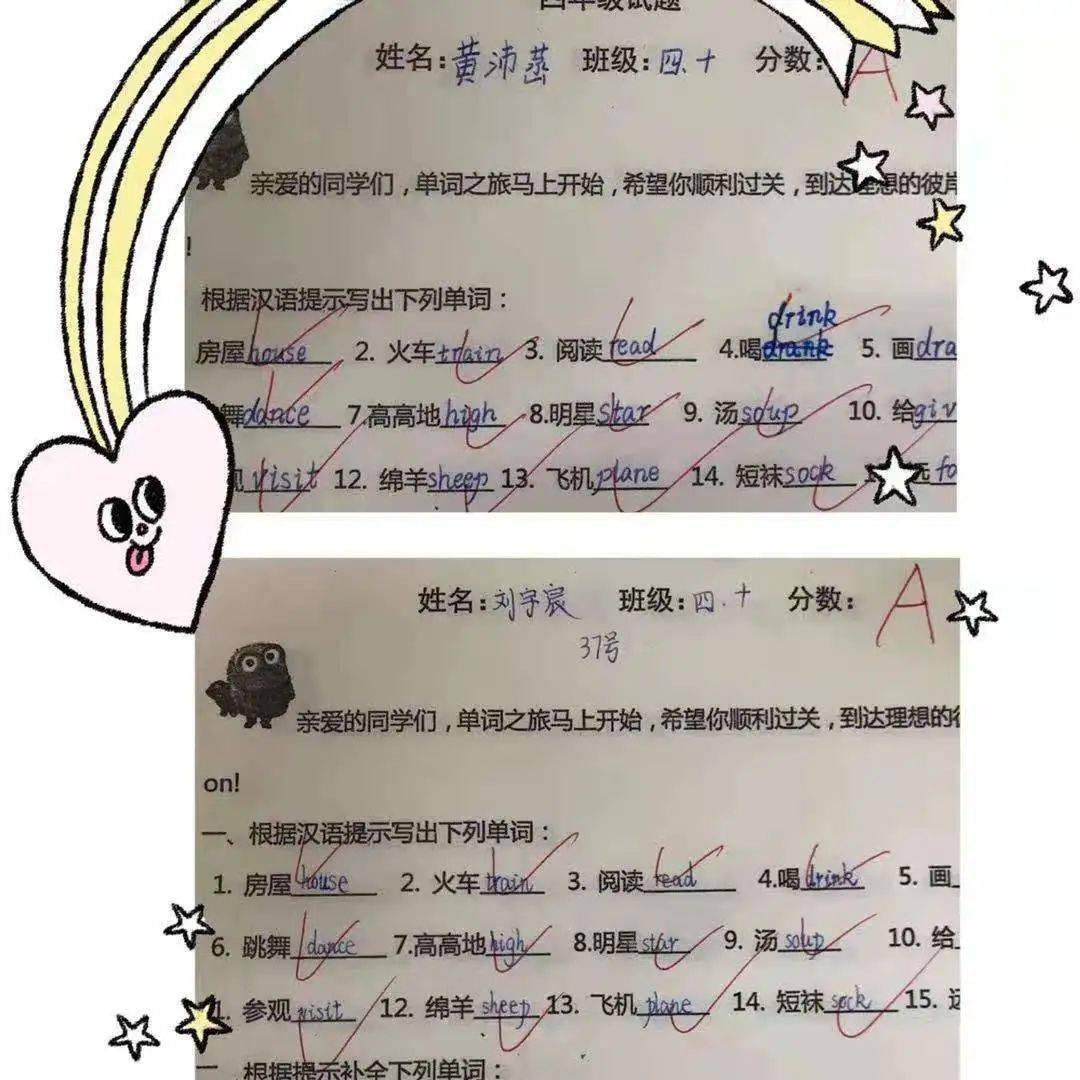 四年级试题
姓名:黄沛 班级:四.十 分数: A
亲爱的同学们，单词之旅马上开始，希望你顺利过关，到达理想的彼岸
!
根据汉语提示写出下列单词：
房屋house 2. 火车train 3. 阅读read 4.喝drank drink 5. 画dra
舞dance 7.高高地high 8.明星star 9. 汤soup 10. 给giv
观visit 12. 绵羊sheep 13. 飞机plane 14. 短袜sock fo
姓名:刘宇宸 班级:四.十 分数: A
37号
亲爱的同学们，单词之旅马上开始，希望你顺利过关，到达理想的
on!
一、根据汉语提示写出下列单词：
1. 房屋house 2. 火车train 3. 阅读read 4.喝drink 5. 画
6. 跳舞dance 7.高高地high 8.明星star 9. 汤soup 10. 给
1. 参观visit 12. 绵羊sheep 13. 飞机plane 14. 短袜sock 15.
根据提示补全下列单词：